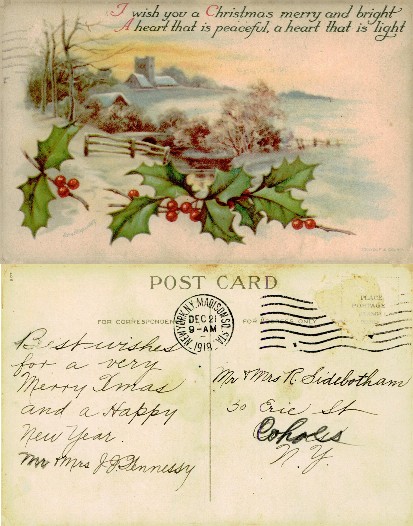 I wish you a Christmas merry and bright
A heart that is peaceful, a heart that is light
POST CARD
NEW YORK, N.Y. MADISON SQ. STA.
DEC 21
9-AM
1918
FOR CORRESPONDENCE
FOR ADDRESS ONLY
PLACE
POSTAGE
Best wishes
for a very
Merry Xmas
and a Happy
New Year.
Mr & Mrs J. P. Hennessy
Mr & Mrs R. Sidebotham
30 Erie St
Cohoes
N.Y.